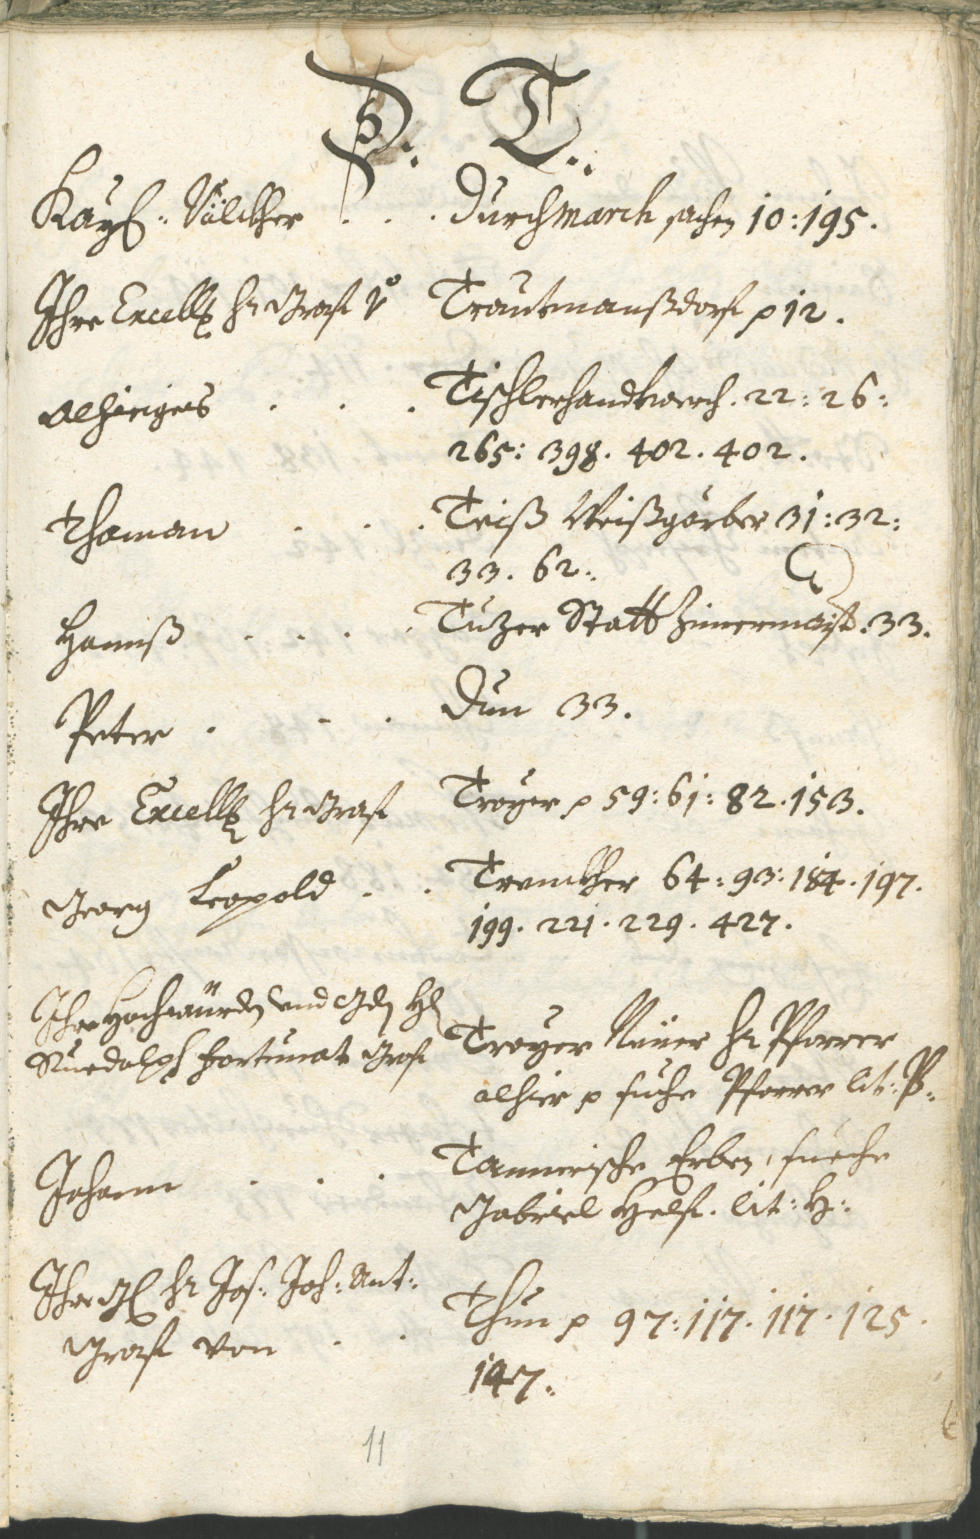 D. T.
Kaÿß. Völckher . . . Durchmarch sachen 10:195.
Ihre Excell: hr Graf v Trautmanßdorf p 12.
Alhieiges . . . Tischlerhandtwerch. 22: 26:
265: 398. 402. 402.
Thoman . . . Teiß Weißgärber 31: 32:
33. 62.
Hannß . . . . Tuzer Statt Zimermaist. 33.
Peter . . . Dun 33.
Ihre Excell: hr Graf Troÿer p 59: 61: 82. 153.
Georg Leopold . . Trenckher 64: 93: 184. 197.
199. 221. 229. 427.
Ihro Hochwürdn und Gdn H
Ruedolph Fortunat Graf Troÿer Neüer hr Pfarrer
alhier p suche Pfarrer lit: P.
Johann . . . Tannerische Erben, sueche
Gabriel Helf. lit: H:
Ihro hr Jos: Joh: Ant:
Graf von . . Thun p 97: 117. 117. 125.
147.
11